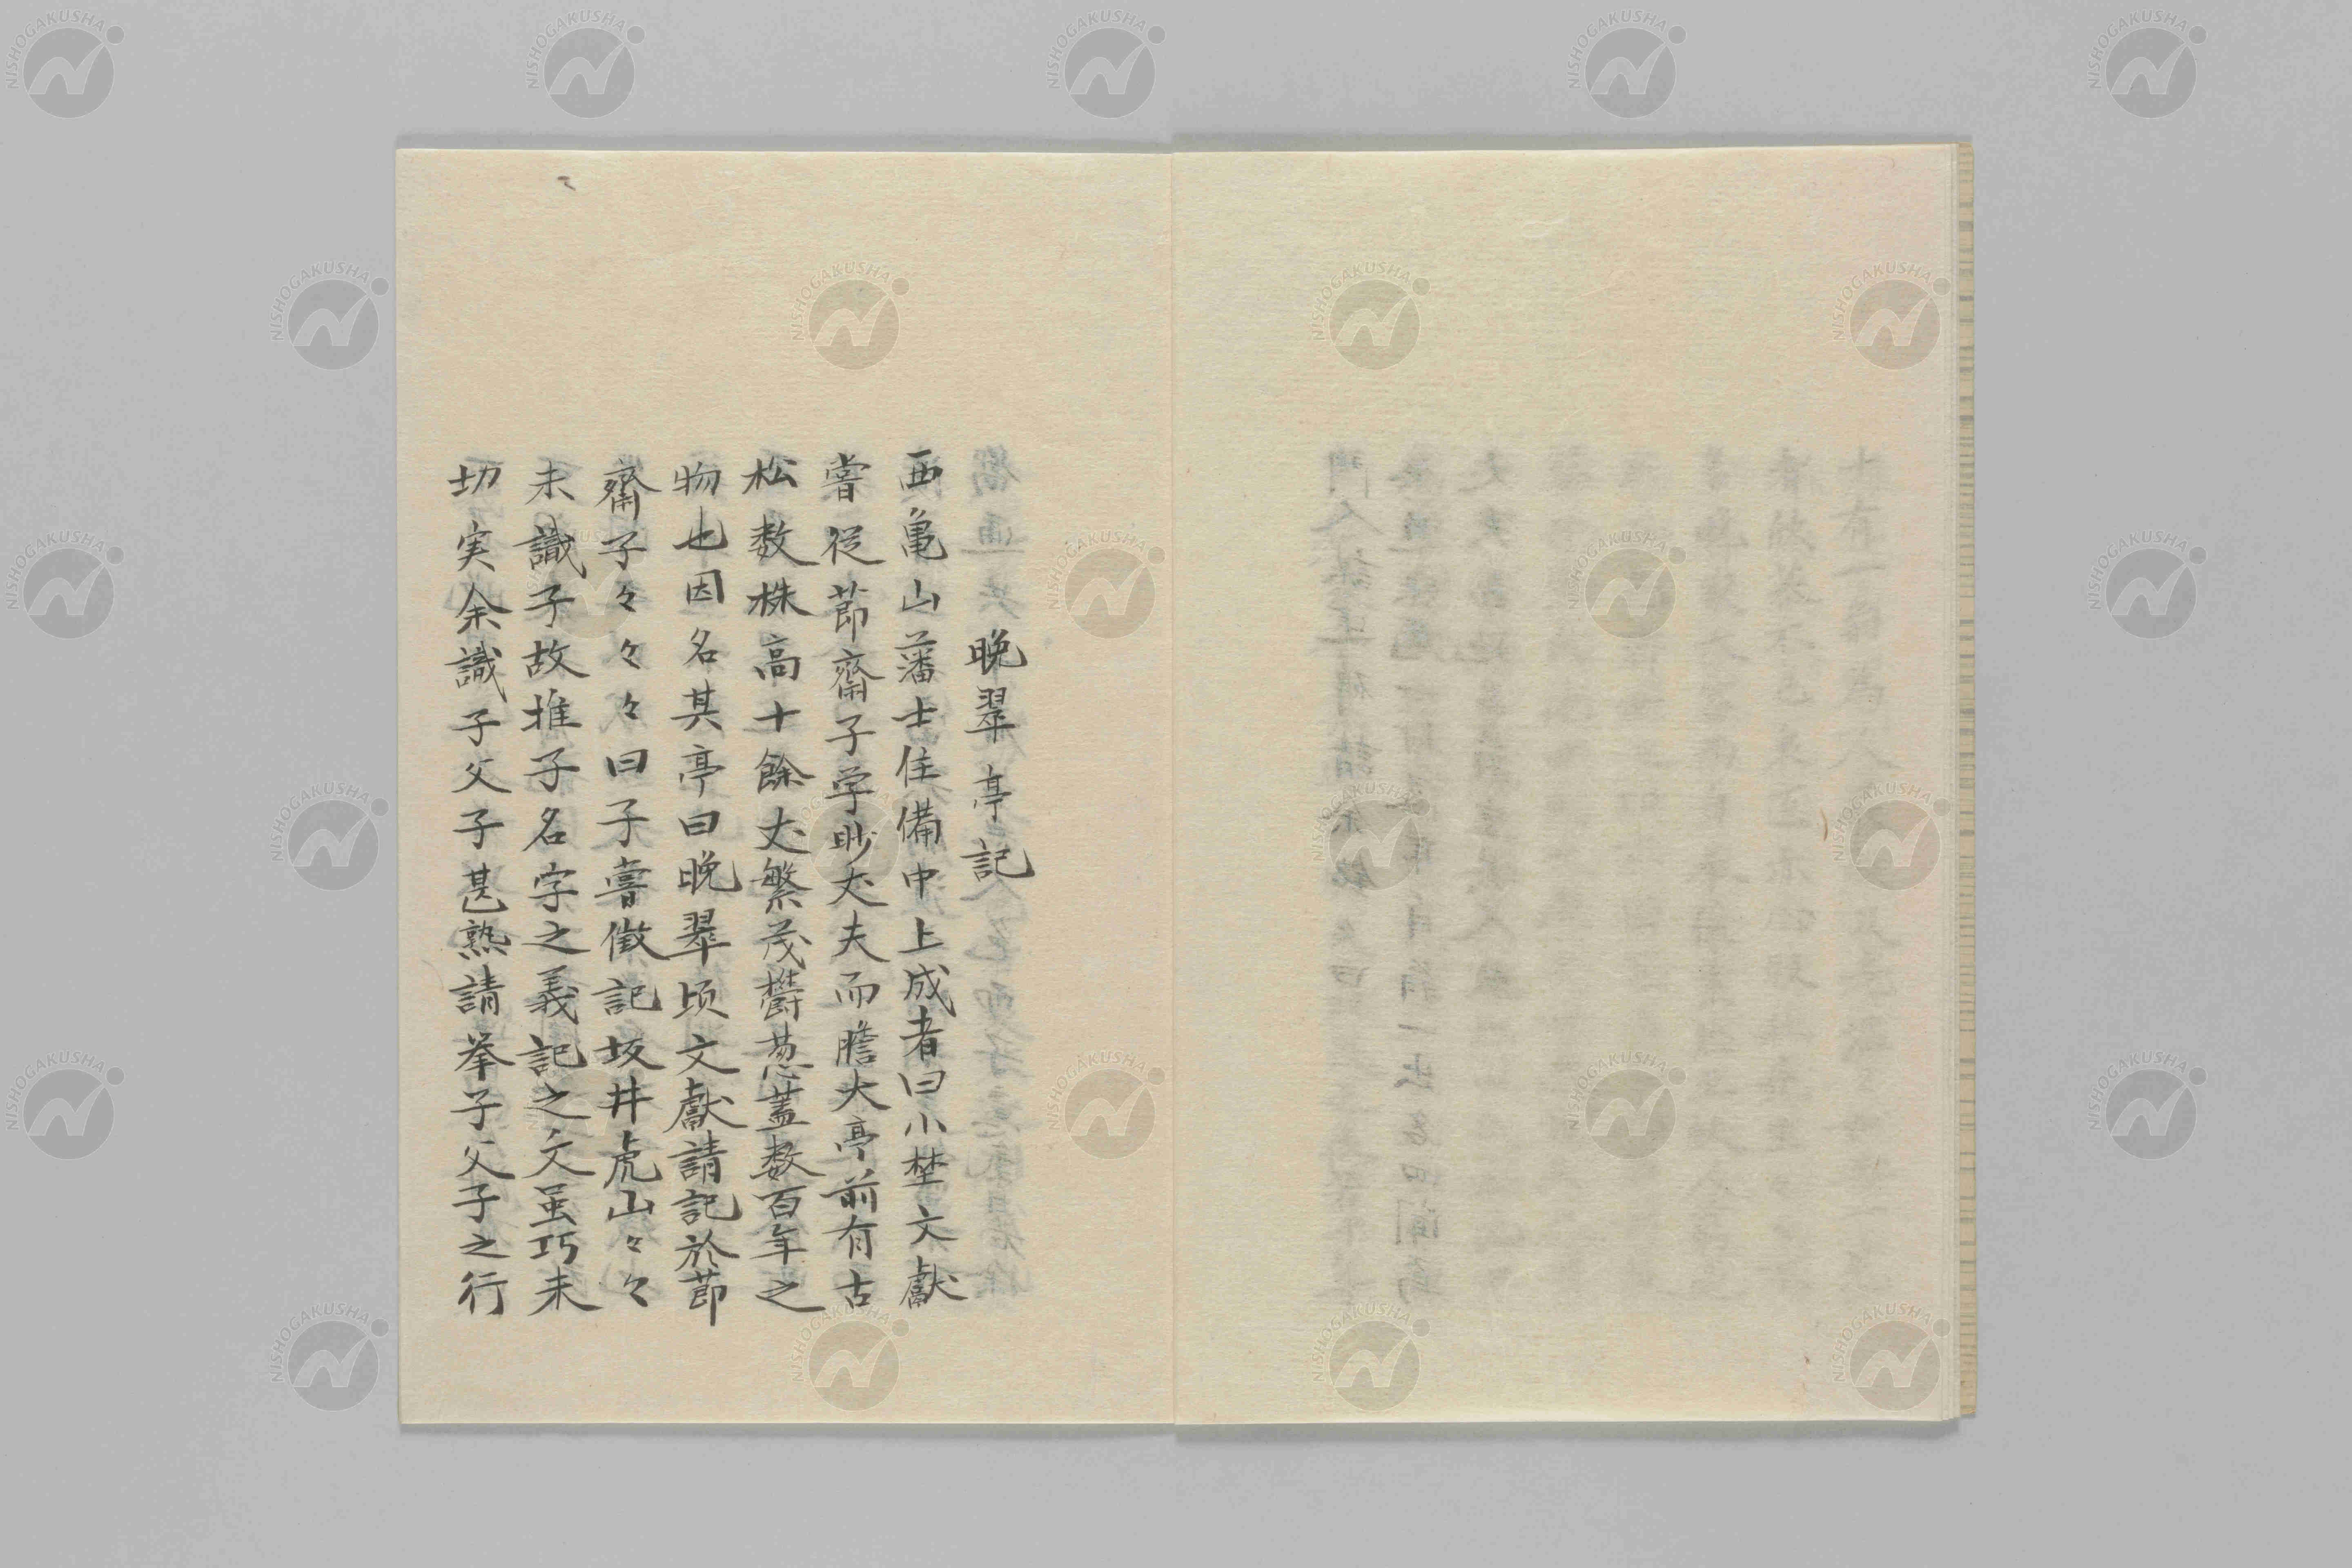 晩翠亭記
西亀山藩士住備中上成者曰小埜文獻
嘗従節齋子学眇丈夫而膽大亭前有古
松数株高十餘丈繁茂欝葱蓋数百年之
物也因名其亭曰晩翠頃文獻請記於節
齋子々々々曰子嘗徴記坂井虎山々々
未識子故推子名字之義記之文虽巧未
切実余識子父子甚熟請挙子父子之行
NISHOGAKUSHA